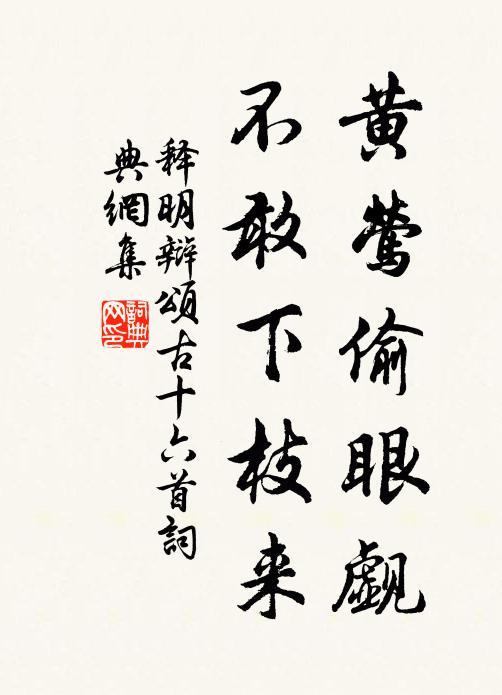 黄莺偷眼觑
不敢下枝来
释明辩颂古十六首词
典网集
词典
网印